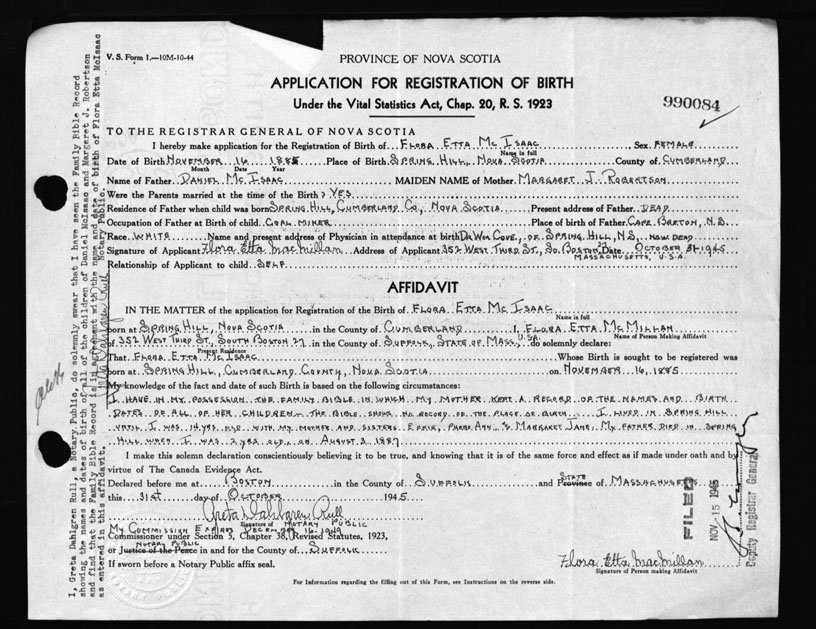 V. S. Form 1.—10M-10-44
PROVINCE OF NOVA SCOTIA
APPLICATION FOR REGISTRATION OF BIRTH
Under the Vital Statistics Act, Chap. 20, R. S. 1923
990084
TO THE REGISTRAR GENERAL OF NOVA SCOTIA
I hereby make application for the Registration of Birth of FLORA ETTA MC ISAAC, Sex FEMALE
Name in full
Date of Birth NOVEMBER 16 1885 Place of Birth SPRING HILL, NOVA SCOTIA County of CUMBERLAND
Month Date Year
Name of Father DANIEL MC ISAAC MAIDEN NAME of Mother MARGARET J. ROBERTSON
Were the Parents married at the time of the Birth? YES
Residence of Father when child was born SPRING HILL, CUMBERLAND CO., NOVA SCOTIA Present address of Father DEAD
Occupation of Father at Birth of Child COAL MINER Place of birth of Father CAPE BRETON, N.S.
Race WHITE Name and present address of Physician in attendance at birth DR WM COVE, OF SPRING HILL, N.S., NOW DEAD
Signature of Applicant Flora Etta MacMillan Address of Applicant 352 WEST THIRD ST., SO. BOSTON Date OCTOBER 31 1945
MASSACHUSETTS, U.S.A.
Relationship of Applicant to child SELF
AFFIDAVIT
IN THE MATTER of the application for Registration of the Birth of FLORA ETTA MC ISAAC
Name in full
born at SPRING HILL, NOVA SCOTIA in the County of CUMBERLAND I, FLORA ETTA MCMILLAN
Name of Person Making Affidavit
of 352 WEST THIRD ST, SOUTH BOSTON 27 in the County of SUFFOLK, STATE OF MASS., U.S.A. do solemnly declare:
Present Residence
That FLORA ETTA MC ISAAC Whose Birth is sought to be registered was
born at SPRING HILL, CUMBERLAND COUNTY, NOVA SCOTIA on NOVEMBER 16, 1885
My knowledge of the fact and date of such Birth is based on the following circumstances:
I HAVE IN MY POSSESSION THE FAMILY BIBLE IN WHICH MY MOTHER KEPT A RECORD OF THE NAMES AND BIRTH
DATES OF ALL OF HER CHILDREN - THE BIBLE SHOWS NO RECORD OF THE PLACE OF BIRTH. I LIVED IN SPRING HILL
UNTIL I WAS 14 YRS OLD WITH MY MOTHER AND SISTERS EFFIE, PHEBE ANN, & MARGARET JANE; MY FATHER DIED IN SPRING
HILL WHEN I WAS 2 YRS OLD, ON AUGUST 2 1887.
I make this solemn declaration conscientiously believing it to be true, and knowing that it is of the same force and effect as if made under oath and by
virtue of The Canada Evidence Act.
Declared before me at BOSTON in the County of SUFFOLK and STATE Province of MASSACHUSETTS
this 31st day of OCTOBER 1945
Greta Dahlgren Rull
Signature of NOTARY PUBLIC
MY COMMISSION EXPIRES DECEMBER 16, 1949
Commissioner under Section 5, Chapter 38, Revised Statutes, 1923,
NOTARY PUBLIC
or Justice of the Peace in and for the County of SUFFOLK
If sworn before a Notary Public affix seal.
Flora Etta MacMillan
Signature of Person making Affidavit
For Information regarding the filling out of this Form, see Instructions on the reverse side.
I, Greta Dahlgren Rull, a Notary Public, do solemnly swear that I have seen the Family Bible Record
showing the names and dates of birth of all of the children of Daniel McIsaac and Margaret J. Robertson
and find that the Family Bible Record is in agreement with the name and date of birth of Flora Etta McIsaac
as entered in this affidavit.
Greta Dahlgren Rull
Notary Public.
FILED
NOV 15 1945
Deputy Registrar General
NOTARY PUBLIC